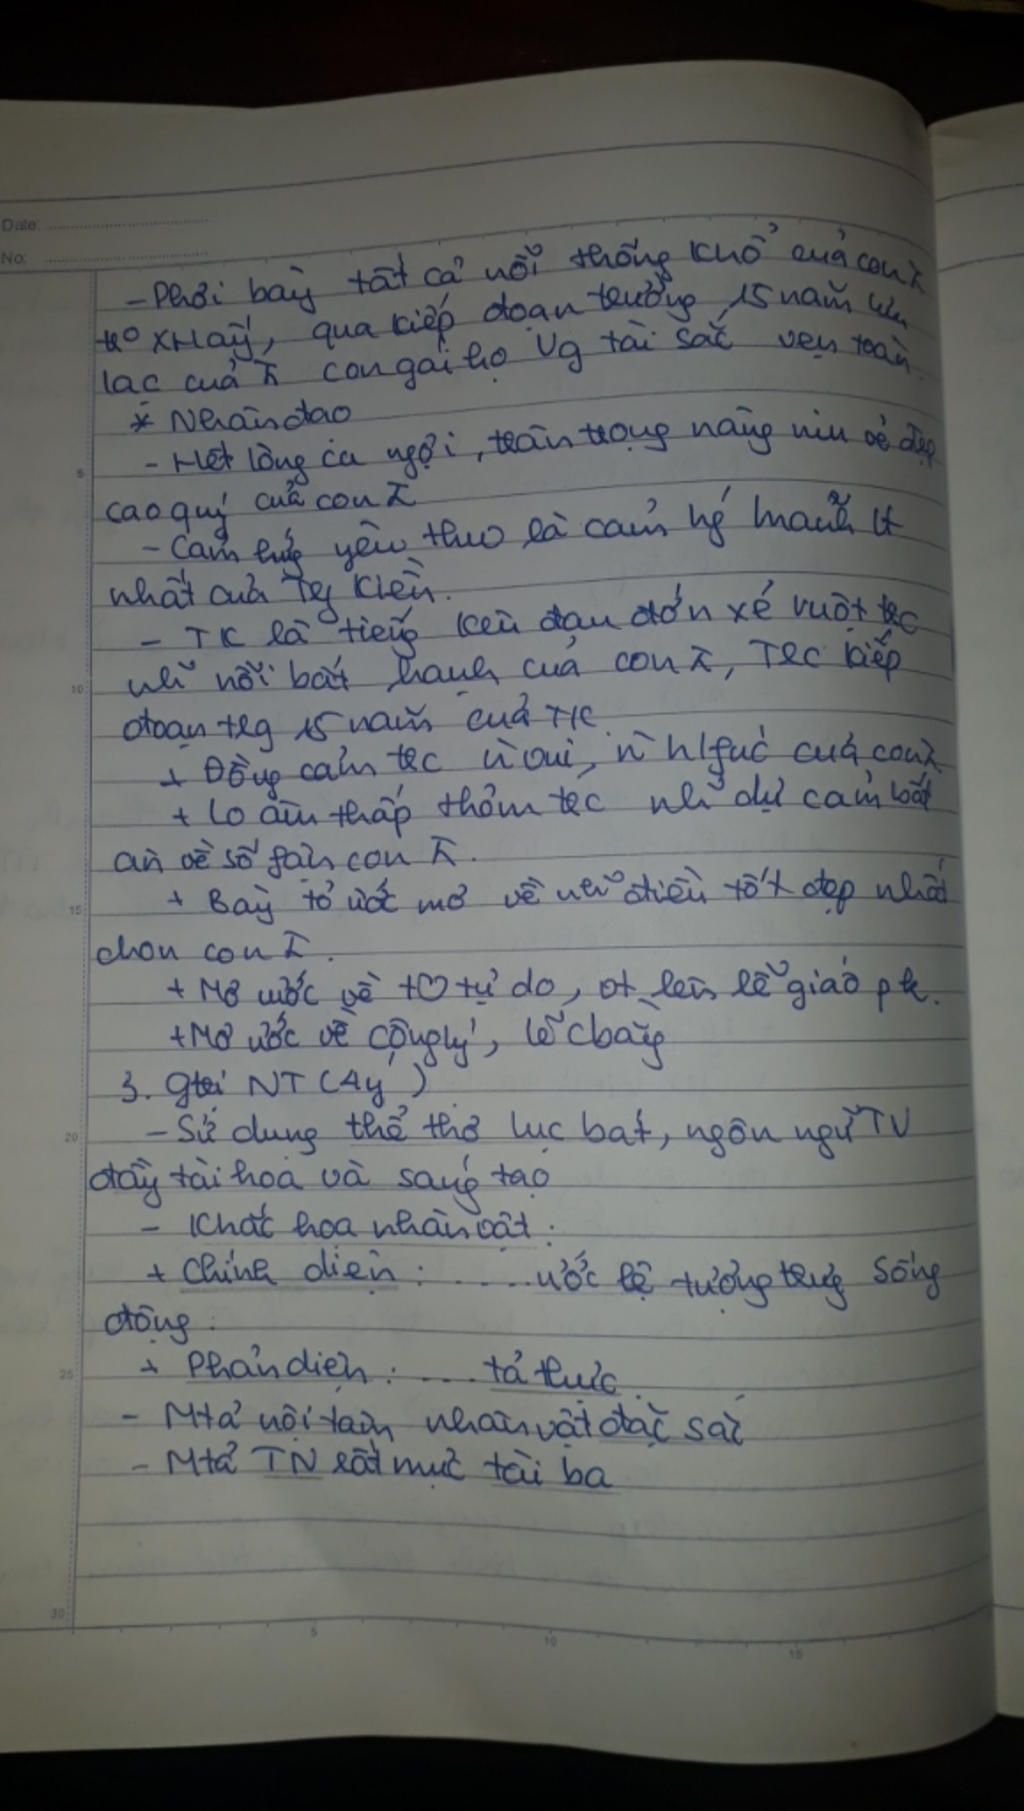 Date:
No:
- Phơi bày tất cả nỗi thống khổ của con
XH ấy, qua kiếp đoạn trường 15 năm lưu
lạc của con gái họ Vg tài sắc vẹn toàn.
* Nhân đạo
- Hết lòng ca ngợi, trân trọng nâng niu vẻ đẹp
cao quý của con
- Cảm hứng yêu thw là cảm hứ mãnh lt
nhất của Tr Kiều.
- TK là tiếng kêu đau đớn xé ruột trc
nh~ nỗi bất hạnh của con, trc kiếp
đoạn trg 15 năm của TK.
+ Đồng cảm trc vui, hfúc của con
+ Lo âu thấp thỏm trc nh~ dự cảm bất
an về số fận con
+ Bày tỏ ước mơ về nh~ điều tốt đẹp nhất
cho con
+ Mơ ước về t♡ tự do, vt lên lễ giáo pk.
+ Mơ ước về công lý, lẽ cbằng
3. Gtrị NT (4 ý)
- Sử dụng thể thơ lục bát, ngôn ngữ TV
đầy tài hoa và sáng tạo
- Khắc họa nhân vật:
+ Chính diện: .....ước lệ tượng trưng sống
động.
+ Phản diện: .... tả thực.
- Mtả nội tâm nhân vật đặc sắc
- Mtả TN rất mực tài ba
5
10
15
20
25
30
5
10
15